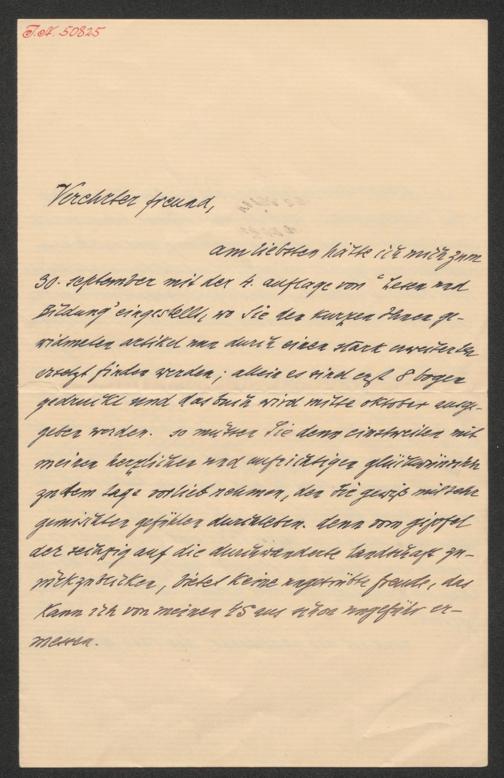 I.N. 50825
Verehrter freund,
am liebsten hätte ich mich zum
30. september mit der 4. auflage von "Lesen und
Bildung" eingestellt, wo Sie den kurzen Ihnen ge-
widmeten artikel nun durch einen stark erweiterten
ersetzt finden werden; allein es sind erst 8 bogen
gedruckt und das buch wird mitte oktober ausge-
geben werden. so müssen Sie denn einstweilen mit
meinen herzlichen und aufrichtigen glückwünschen
zu dem tage vorlieb nehmen, den Sie gewiß mit sehr
gemischten gefühlen durchleben. denn vom gipfel
der sechzig auf die durchwanderte landschaft zu-
rückzublicken, bietet keine ungetrübte freude, das
kann ich von meinen 45 aus schon ungefähr er-
messen.